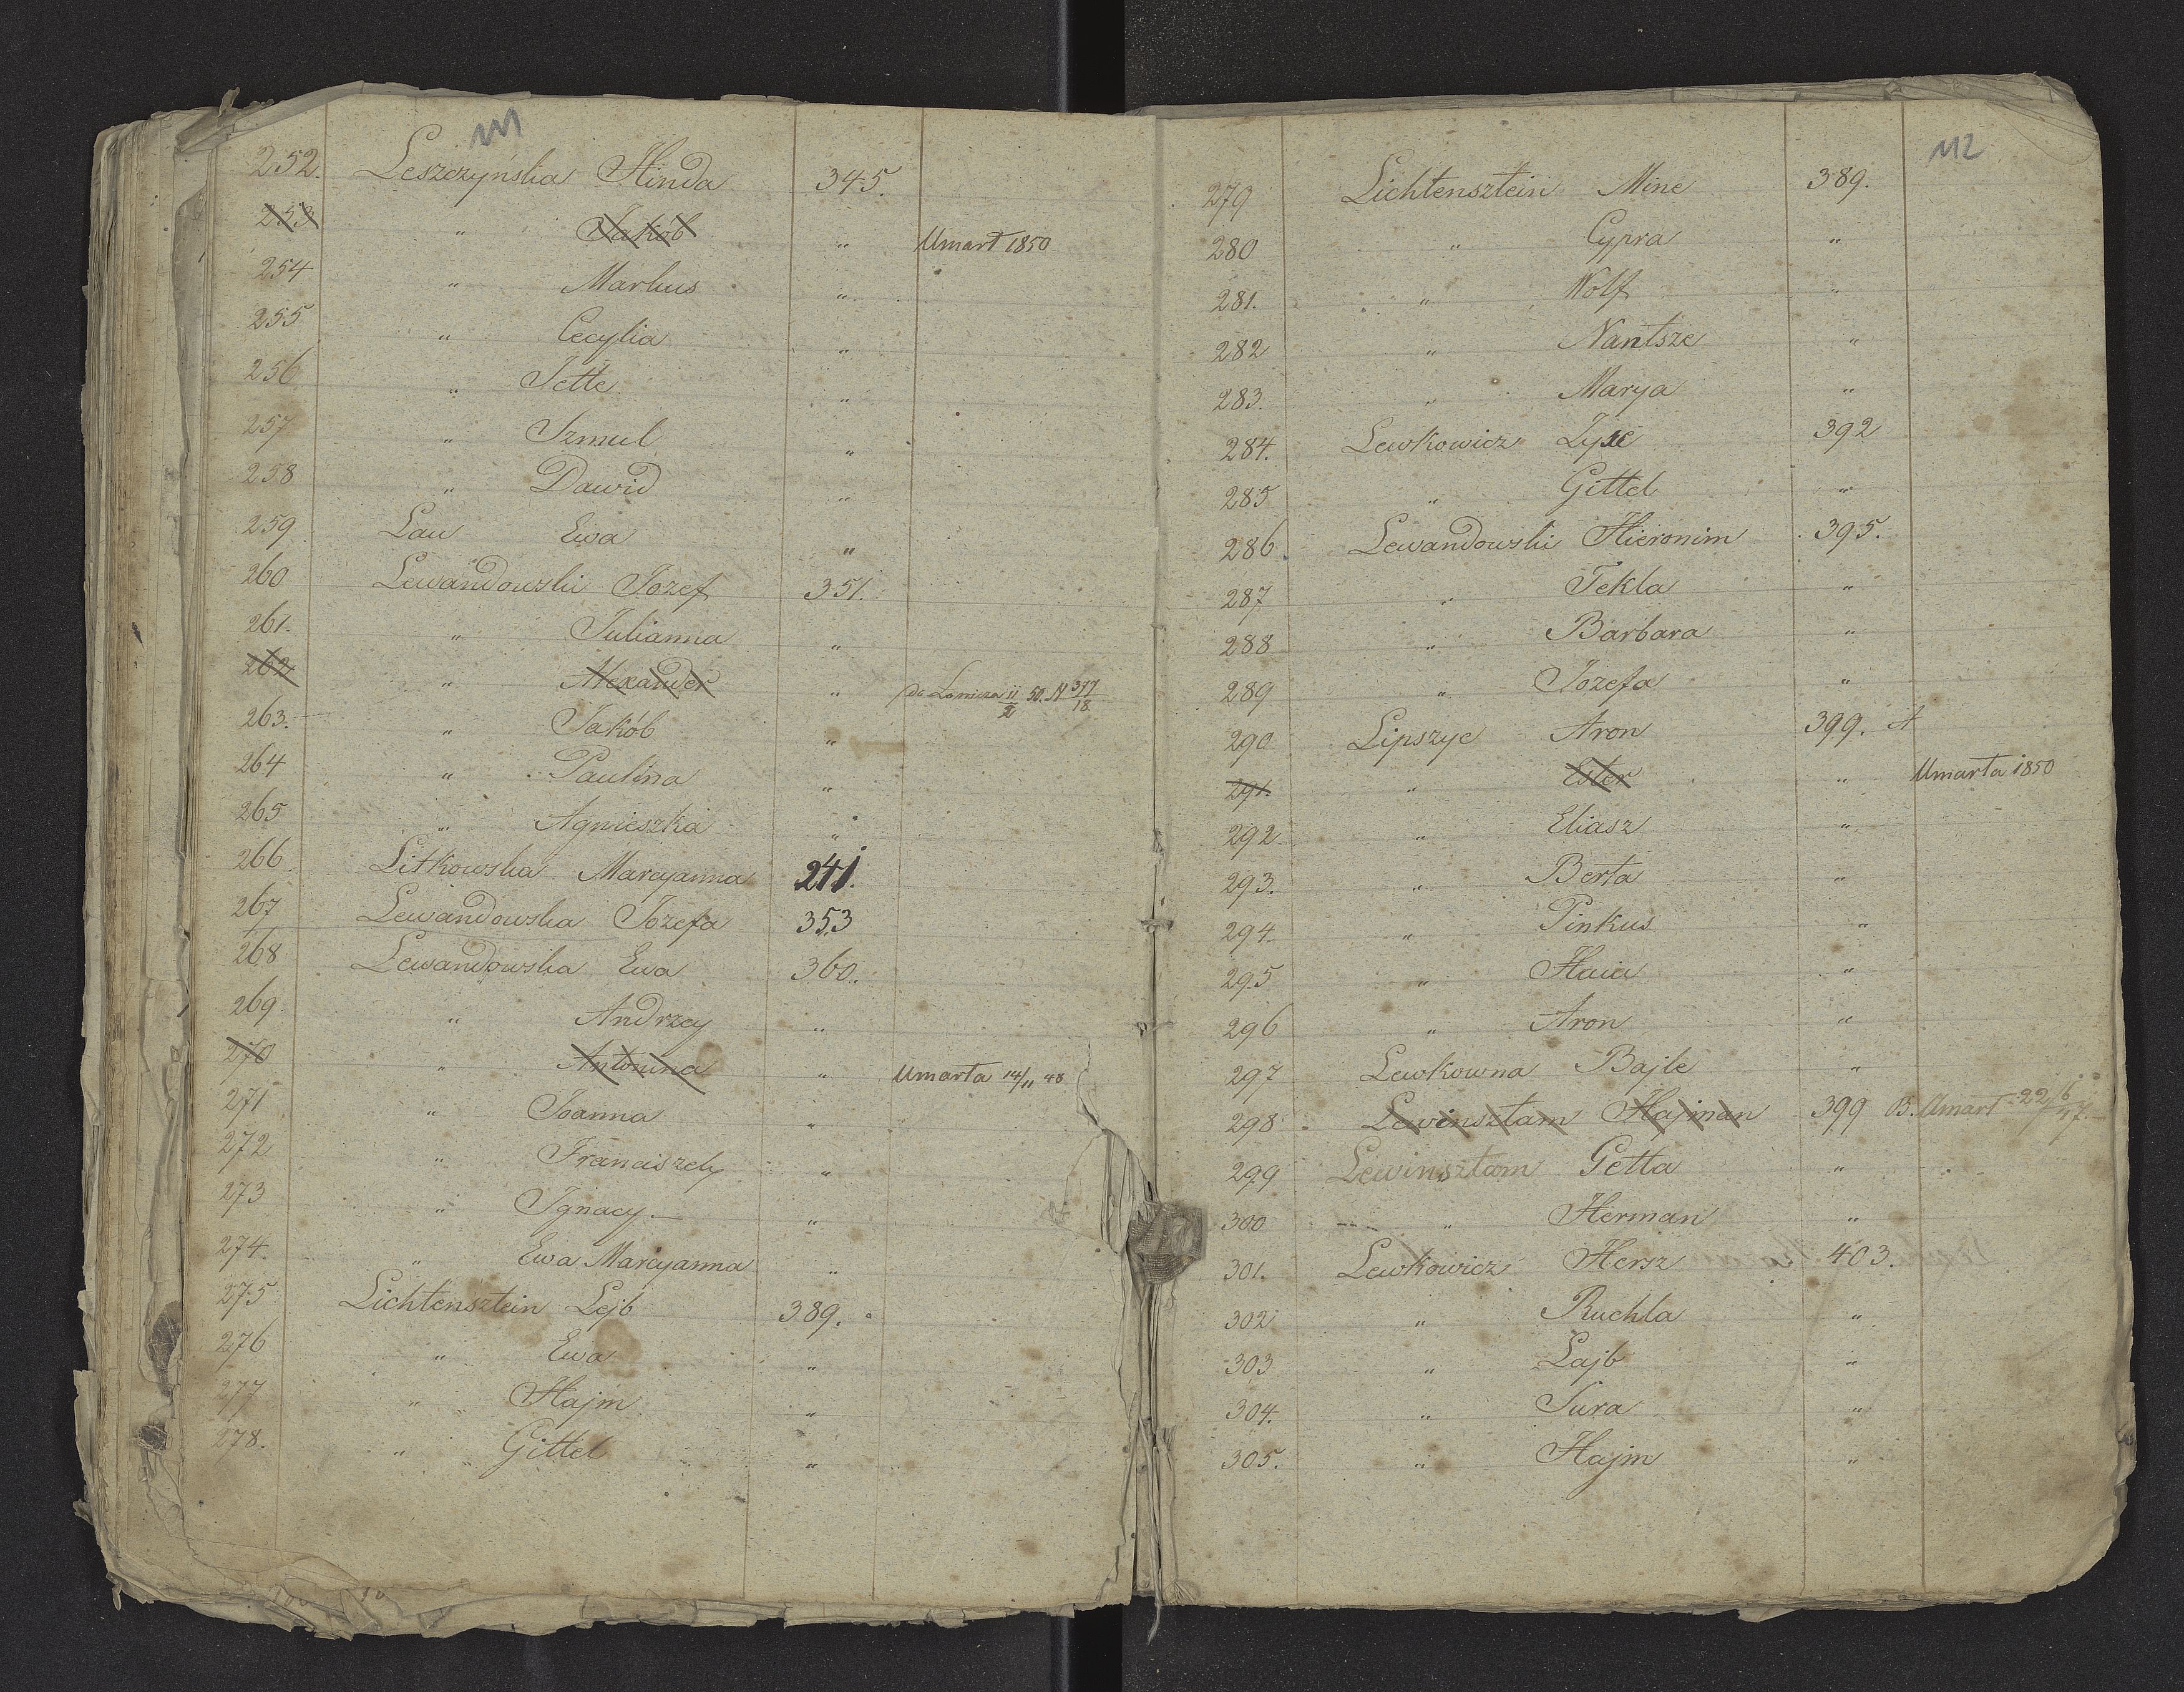 111
252. Leszczyńska Hinda 345.
253 " Jakób " Umarł 1850
254 " Markus "
255 " Cecylia "
256 " Jette "
257 " Szmul "
258 " Dawid "
259 Lau Ewa "
260 Lewandowski Jozef 351.
261. " Julianna "
262 " Alexander " do 11/2 50. N 377/18
263. " Jakób "
264 " Paulina "
265 " Agnieszka "
266. Litkowska Maryanna 241.
267 Lewandowska Jozefa 353
268 Lewandowska Ewa 360.
269. " Andrzey "
270 " Antonina " Umarła 14/11 48
271 " Joanna "
272 " Franciszek "
273 " Ignacy "
274. " Ewa Maryanna "
275 Lichtensztein Lejb 389.
276 " Ewa "
277 " Hajm "
278. " Gittel "
112
279 Lichtensztein Mine 389.
280 " Cypra "
281. " Wolf "
282 " Nantsze "
283. " Marya "
284. Lewkowicz 392
285 " Gittel "
286. Lewandowski Hieronim 395.
287 " Tekla "
288 " Barbara "
289 " Józefa "
290 Lipszyc Aron 399. A
291. " Ester " Umarła 1850
292 " Eliasz "
293. " Berta "
294. " Pinkus "
295 " Haia "
296 " Aron "
297 Lewkowna Bajle "
298 Lewinsztam Hajman 399 B. Umarł 22/6 47.
299 Lewinsztam Getta "
300 " Herman "
301. Lewkowicz Hersz 403.
302 " Ruchla "
303 " Lajb "
304. " Sura "
305. " Hajm "